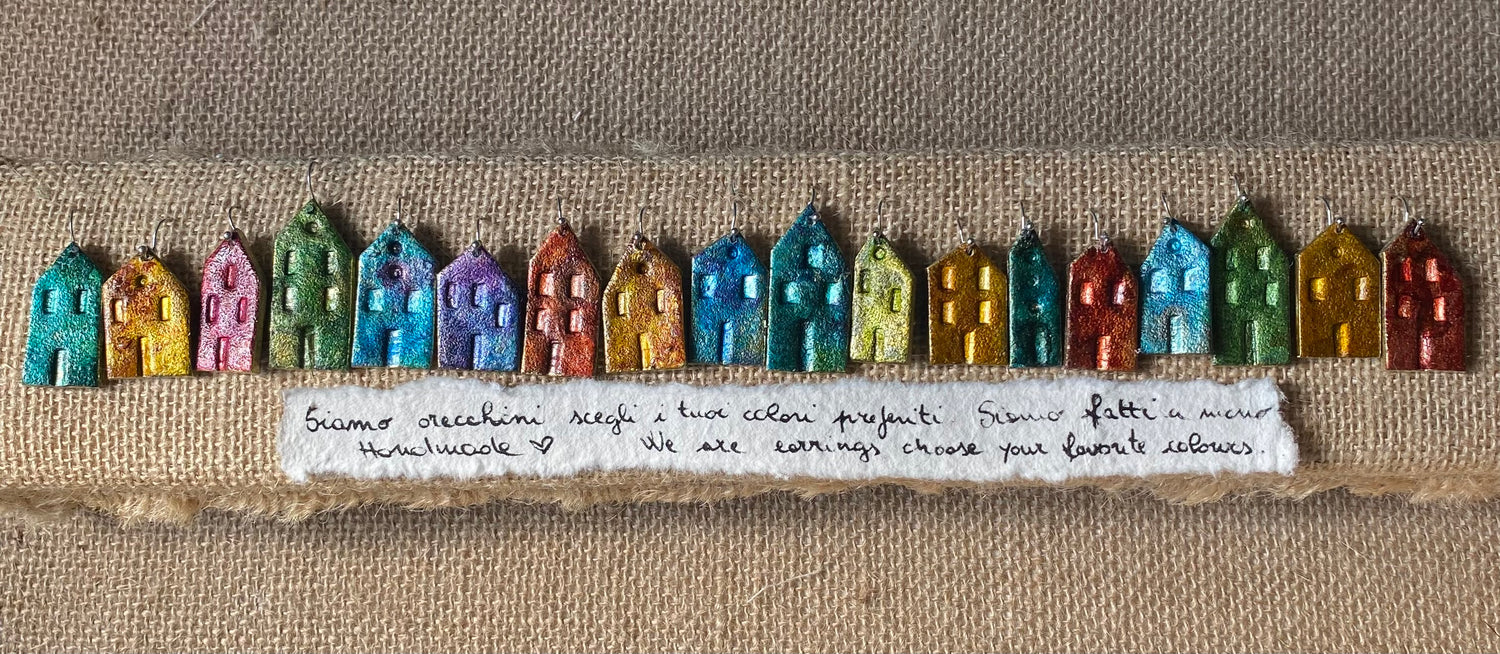 Siamo orecchini scegli i tuoi colori preferiti. Siamo fatti a mano
Handmade ♡ We are earrings choose your favorite colours.